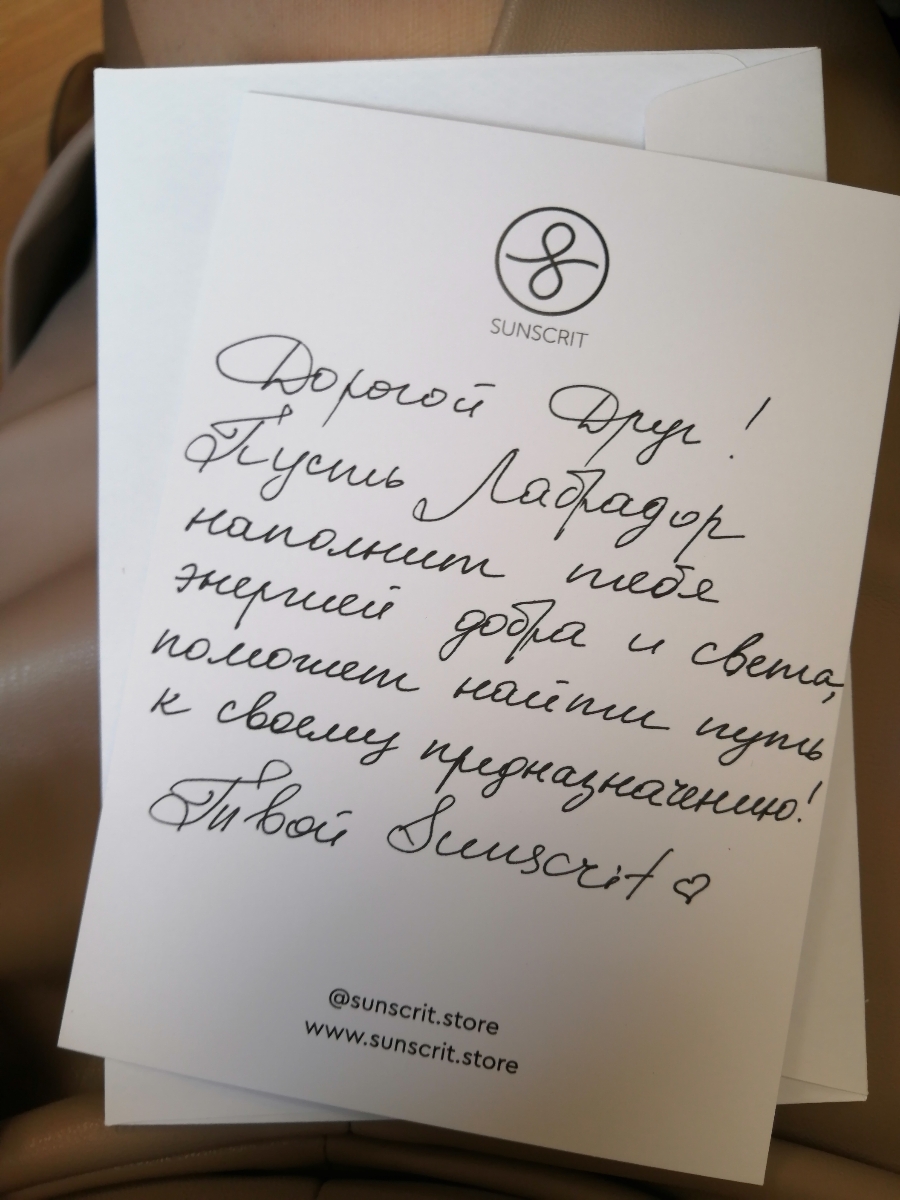 SUNSCRIT
Дорогой Друг!
Пусть Лабрадор
наполнит тебя
энергией добра и света,
поможет найти путь
к своему предназначению!
Твой Sunscrit ♡
@sunscrit.store
www.sunscrit.store